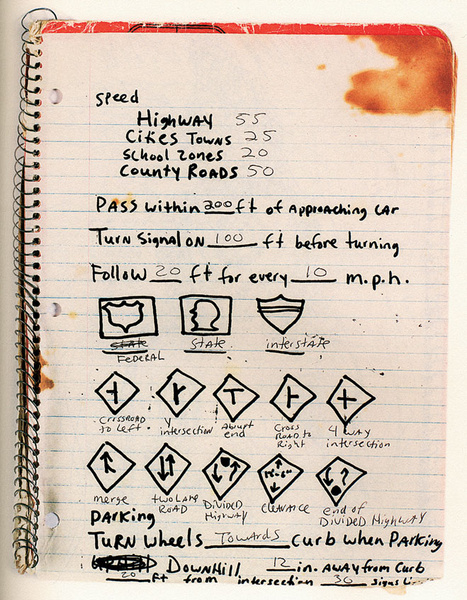 Speed
Highway 55
Cities Towns 25
School Zones 20
County Roads 50
Pass within 200 ft of Approaching car
Turn Signal on 100 ft before turning
Follow 20 ft for every 10 m.p.h.
State State interstate
Federal
Crossroad to Left Y intersection Abupt end Cross Road to Right 4 way intersection
merge two lane Road Divided Highway Clearance end of Divided Highway
Parking
Turn wheels Towards curb when Parking
Downhill 12 in. away from Curb
20 ft from intersection 30 signs